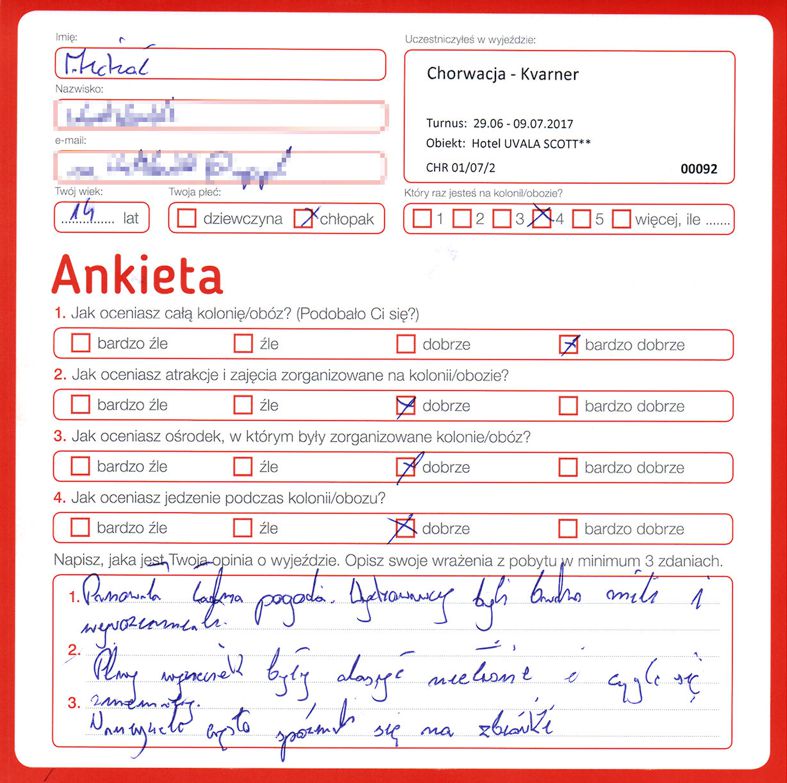 Imię:
Michał
Nazwisko:
e-mail:
Twój wiek:
14 lat
Twoja płeć:
dziewczyna chłopak
Uczestniczyłeś w wyjeździe:
Chorwacja - Kvarner
Turnus: 29.06 - 09.07.2017
Obiekt: Hotel UVALA SCOTT**
CHR 01/07/2 00092
Który raz jesteś na kolonii/obozie?
1 2 3 4 5 więcej, ile .......
Ankieta
1. Jak oceniasz całą kolonię/obóz? (Podobało Ci się?)
bardzo źle źle dobrze bardzo dobrze
2. Jak oceniasz atrakcje i zajęcia zorganizowane na kolonii/obozie?
bardzo źle źle dobrze bardzo dobrze
3. Jak oceniasz ośrodek, w którym były zorganizowane kolonie/obóz?
bardzo źle źle dobrze bardzo dobrze
4. Jak oceniasz jedzenie podczas kolonii/obozu?
bardzo źle źle dobrze bardzo dobrze
Napisz, jaka jest Twoja opinia o wyjeździe. Opisz swoje wrażenia z pobytu w minimum 3 zdaniach.
1. Panowała ładna pogoda. Wychowawcy byli bardzo mili i
wyrozumiali.
2. Plany wycieczek były dosyć nieclne i ciągle się
3. zmieniały.
często spóźniali się na zbiórki